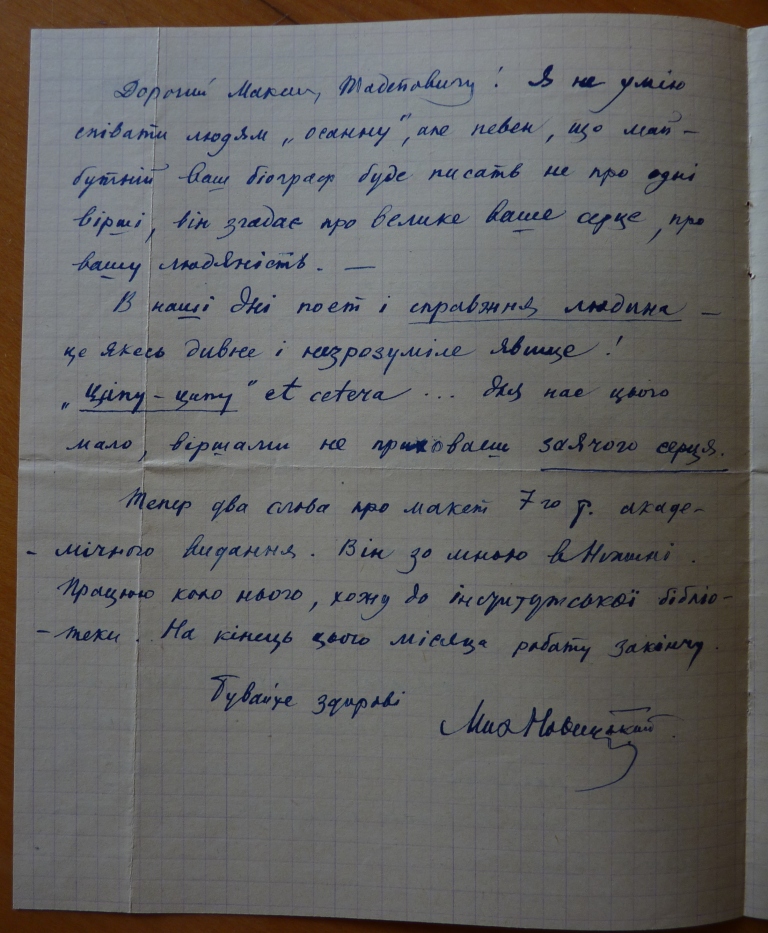 Дорогий Максим Тадеєовичу! Я не умію
співати людям „осанну“, але певен, що май-
бутній ваш біограф буде писать не про одні
вірші, він згадає про велике ваше серце, про
вашу людяність. —
В наші дні поет і справжня людина –
це якесь дивне і незрозуміле явище!
„Ціпу-ципу“ et cetera ... для нас цього
мало, віршами не приховаєш заячого серця.
Тепер два слова про макет 7го т. акаде-
- мічного видання. Він зо мною в Ніжині.
Працюю коло нього, хожу до інститутської бібліо-
- теки. На кінець цього місяця роботу закінчу.
Бувайте здорові
Мих Новицький